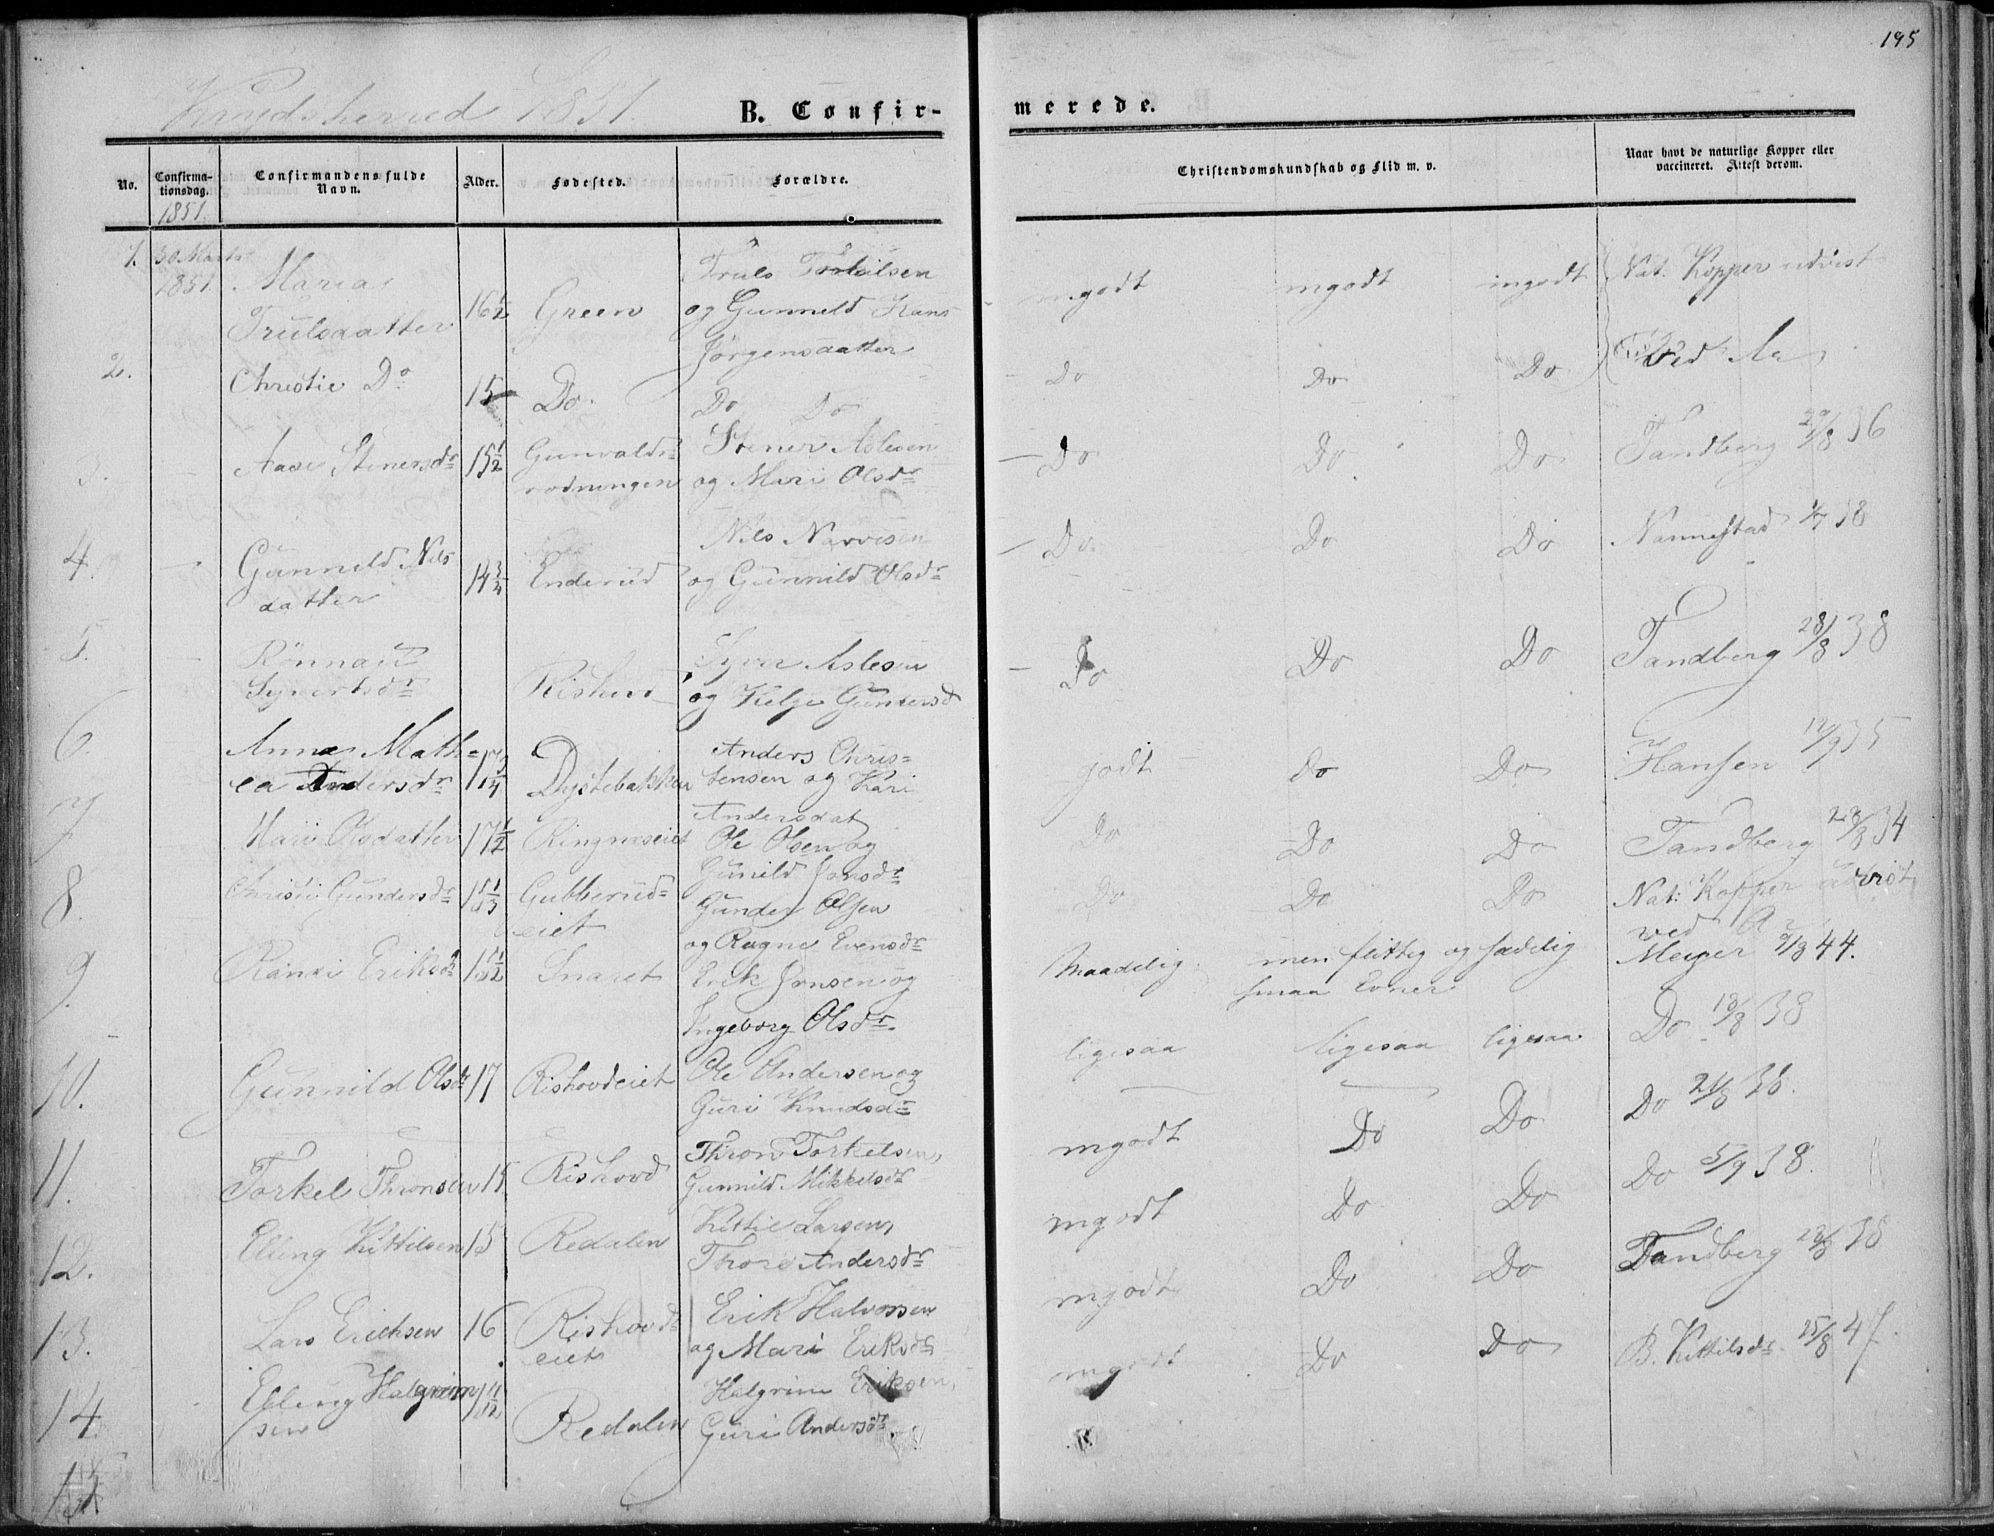 195
1851.
B. Confirmerede.
No. Confirmationsdag. Confirmandens fulde Navn. Alder. Fødested. Forældre. Christendomskundskab og Flid m. v. Naar havt de naturlige Kopper eller vaccineret. Attest derom.
1851.
1. 30 Marts 1851 Maria Trulsdatter 16 1/2 Green Truls Torkilsen og Gunnild Hans Jörgensdatter mgodt mgodt mgodt Nat. Kopper udvist
2. Christie Do 15 Do. Do Do Do Do Do ved Aa
3. Aase Stenersdr 15 1/2 Gunvalds rodningen Stener Aslesen og Mari Olsdr Do Do Do Tandberg 29/8 36
4. Gunnild Nils datter 14 3/4 Enderud Nils Narvesen og Gunnild Olsdr Do Do Do Nannestad 1/7 38
5. Rönnau Syvertsdr Rishovd Syver Aslesen og Helge Gunnersd Do Do Do Tandberg 28/8 38
6. Anna Mathea Andersdr Dystebakken Anders Christensen og Kari Andersdat godt Do Do Hansen 12/9 35
7 Mari Olsdatter 17 1/2 Ringneseiet Ole Olsen og Gunild Jonsdr Do Do Do Tandberg 28/8 34
8. Christi Gundersdr Gutterudeiet Gunder Olsen og Ragne Evensdr Do Do Do Nat: Kopper udvist ved A
9. Eriksdr Snaret Erik Jonsen og Ingeborg Olsdr Maadelig men flittig og sædelig smaa Evner Meyer 9/8 44.
10. Gunnild Olsdr 17 Rishovdeiet Ole Andersen og Guri Knudsdr ligesaa ligesaa ligesaa Do 18/8 38
11. Torkel Thronsen 15 Rishovd Thron Torkelsen, Gunnild Mikkelsdr mgodt Do Do Do 21/8 38.
12. Elling Kittilsen 15 Redalen Kittil Larsen, Thore Andersdr mgodt Do Do Do 5/9 38.
13. Lars Erichsen 16 Rishovdeiet Erik Halvorsen og Mari Eriksdr mgodt Do Do Tandberg 28/8 38
14. Elling Halgrimsen Redalen Halgrim Eriksen, Guri Andersdr mgodt Do Do B. Kittilsdr. 25/8 47.